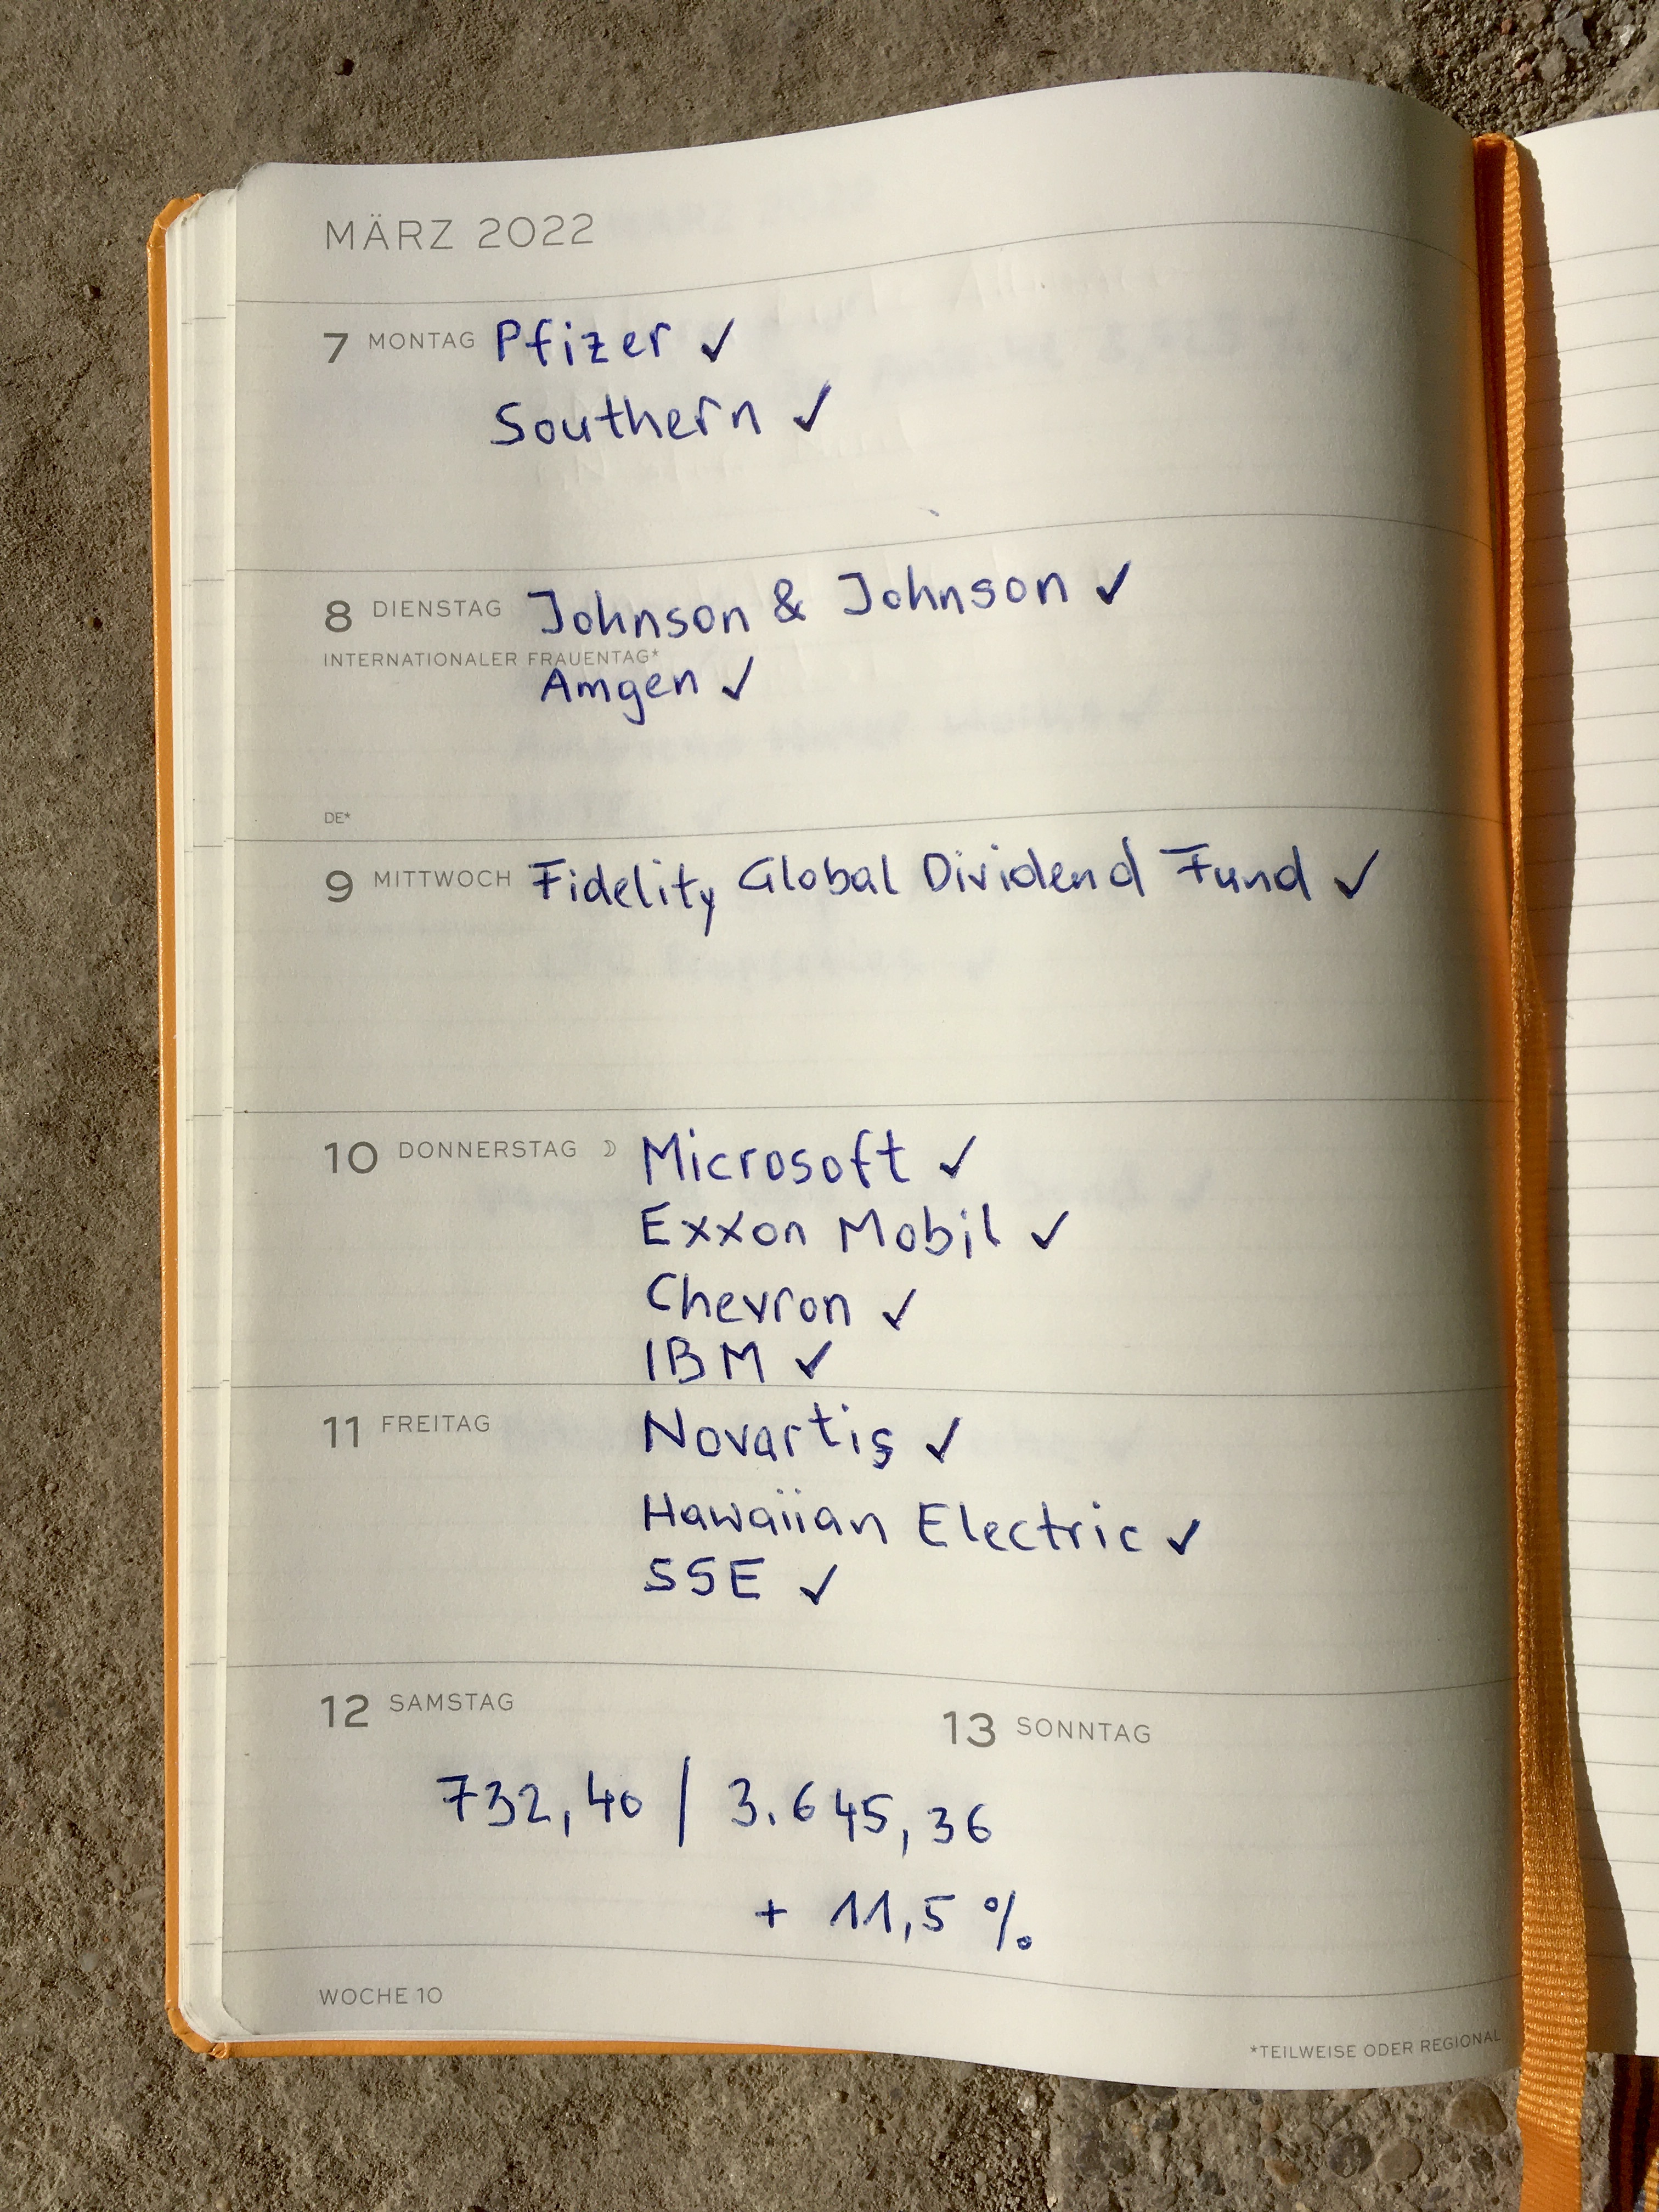 MÄRZ 2022
7 MONTAG Pfizer ✓
Southern ✓
8 DIENSTAG Johnson & Johnson ✓
INTERNATIONALER FRAUENTAG*
Amgen ✓
DE*
9 MITTWOCH Fidelity Global Dividend Fund ✓
10 DONNERSTAG ☽ Microsoft ✓
Exxon Mobil ✓
Chevron ✓
IBM ✓
11 FREITAG Novartis ✓
Hawaiian Electric ✓
SSE ✓
12 SAMSTAG 13 SONNTAG
732,40 / 3.645,36
+ 11,5 %
WOCHE 10
*TEILWEISE ODER REGIONAL